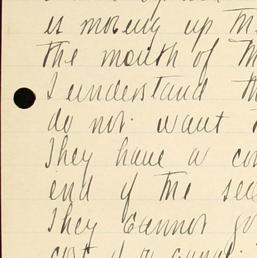 is moving up the
the mouth of th
I understand th
do not want
They have a co
end of the sea
They cannot go
cost of a